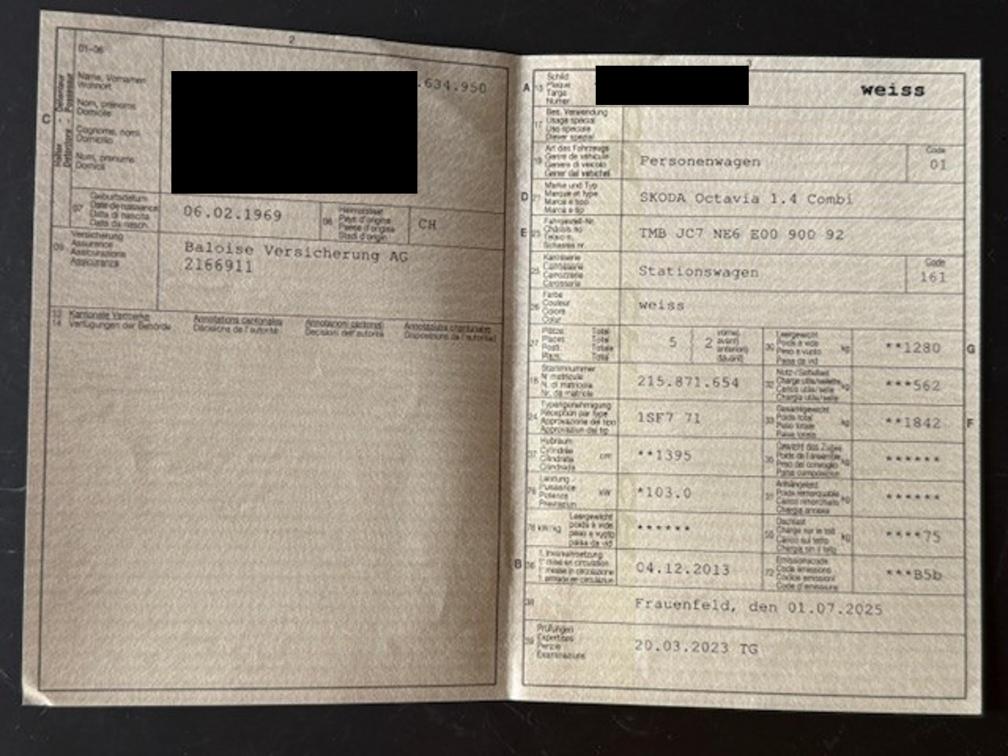 2
01-06
Name, Vornamen
Wohnort
Nom, prénoms
Domicile
Cognome, nomi
Domicilio
Num, prenums
Domicil
C
.634.950
07
Geburtsdatum
Date de naissance
Data di nascita
Data da nasch.
06.02.1969
08
Heimatstaat
Pays d'origine
Paese d'origine
Stadi d'origin
CH
09
Versicherung
Assurance
Assicurazione
Assicuranza
Baloise Versicherung AG
2166911
13
14
Kantonale Vermerke
Verfügungen der Behörde
Annotations cantonales
Décisions de l'autorité
Annotazioni cantonali
Decisioni dell'autorità
Annotaziuns chantunalas
Disposiziuns da l'autoritad
A
15
Schild
Plaque
Targa
Numer
weiss
17
Bes. Verwendung
Usage spécial
Uso speciale
Diever spezial
19
Art des Fahrzeugs
Genre de véhicule
Genere di veicolo
Gener dal vehichel
Personenwagen
Code
01
D
21
Marke und Typ
Marque et type
Marca e tipo
Marca e tip
SKODA Octavia 1.4 Combi
E
23
Fahrgestell-Nr.
Châssis no
Telaio n.
Schassis nr.
TMB JC7 NE6 E00 900 92
25
Karosserie
Carrosserie
Carrozzeria
Carossaria
Stationswagen
Code
161
26
Farbe
Couleur
Colore
Colur
weiss
27
Plätze Total
Places Total
Posti Totale
Plazs Total
5
2
vorne
avant
anteriori
davant
30
Leergewicht
Poids à vide
Peso a vuoto
Paisa da vid
kg
**1280
G
18
Stammnummer
N° matricule
N. di matricola
Nr. da matricla
215.871.654
32
Nutz-/Sattellast
Charge utile/sellette
Carico utile/sella
Chargia utila/sella
***562
24
Typengenehmigung
Réception par type
Approvazione del tipo
Approvaziun dal tip
1SF7 71
33
Gesamtgewicht
Poids total
Peso totale
Paisa totala
**1842
F
37
Hubraum
Cylindrée
Cilindrata
Cilindrada
cm³
**1395
35
Gewicht des Zuges
Poids de l'ensemble
Peso del convoglio
Paisa cumposiziun
kg
******
76
Leistung
Puissance
Potenza
Prestaziun
kW
*103.0
31
Anhängelast
Poids remorquable
Carico rimorchiato
Chargia annexa
kg
******
78 kW/kg
Leergewicht
poids à vide
peso a vuoto
paisa da vid
******
55
Dachlast
Charge sur le toit
Carico sul tetto
Chargia sin il tetg
kg
****75
B
36
1. Inverkehrsetzung
1re mise en circulation
1. messa in circolazione
1. entrada en circulaziun
04.12.2013
72
Emissionscode
Code émissions
Codice emissioni
Code d'emissiuns
***B5b
38
Frauenfeld, den 01.07.2025
39
Prüfungen
Expertises
Perizie
Examinaziuns
20.03.2023 TG